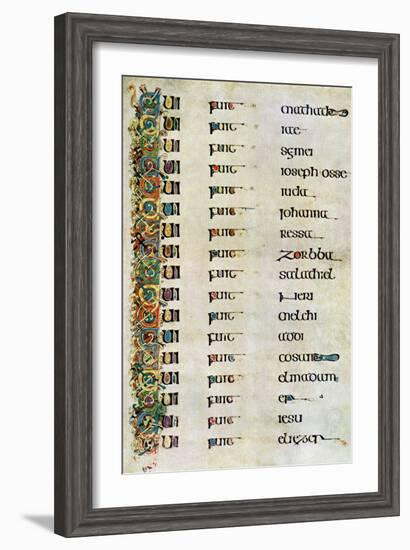 Qui fuit mathathae
Qui fuit iae
Qui fuit semei
Qui fuit ioseph osse
Qui fuit iuda
Qui fuit iohanna
Qui fuit ressa
Qui fuit zorbba
Qui fuit salathiel
Qui fuit neri
Qui fuit melchi
Qui fuit addi
Qui fuit cosam
Qui fuit elmadam
Qui fuit er
Qui fuit iesu
Qui fuit eliezer